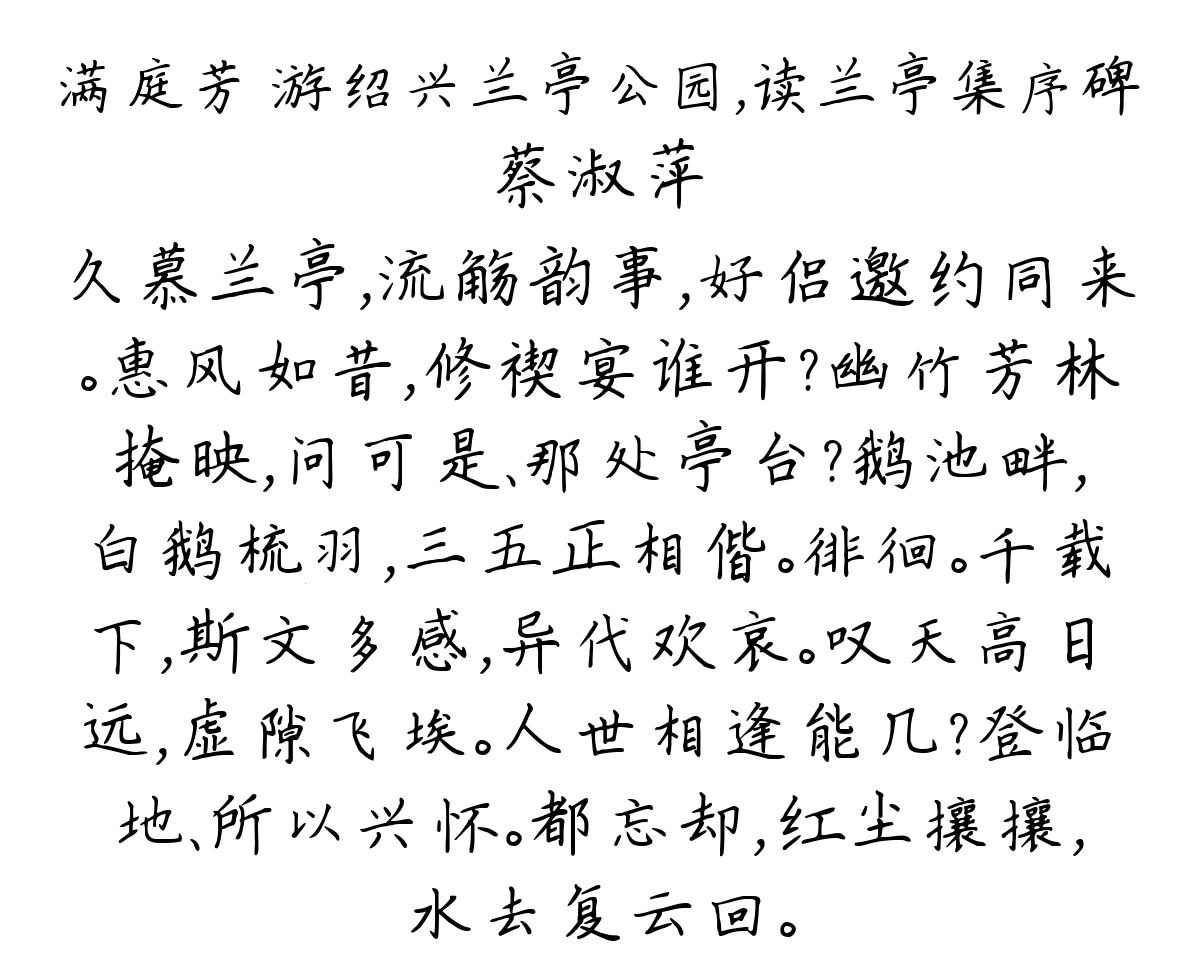 满庭芳 游绍兴兰亭公园,读兰亭集序碑
蔡淑萍
久慕兰亭,流觞韵事,好侣邀约同来
。惠风如昔,修禊宴谁开?幽竹芳林
掩映,问可是、那处亭台?鹅池畔,
白鹅梳羽,三五正相偕。徘徊。千载
下,斯文多感,异代欢哀。叹天高日
远,虚隙飞埃。人世相逢能几?登临
地、所以兴怀。都忘却,红尘攘攘,
水去复云回。